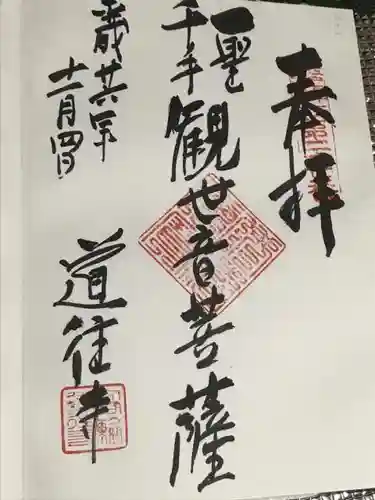 奉拝
聖
千手観世音菩薩
平成廿六年
十一月四日
道往寺